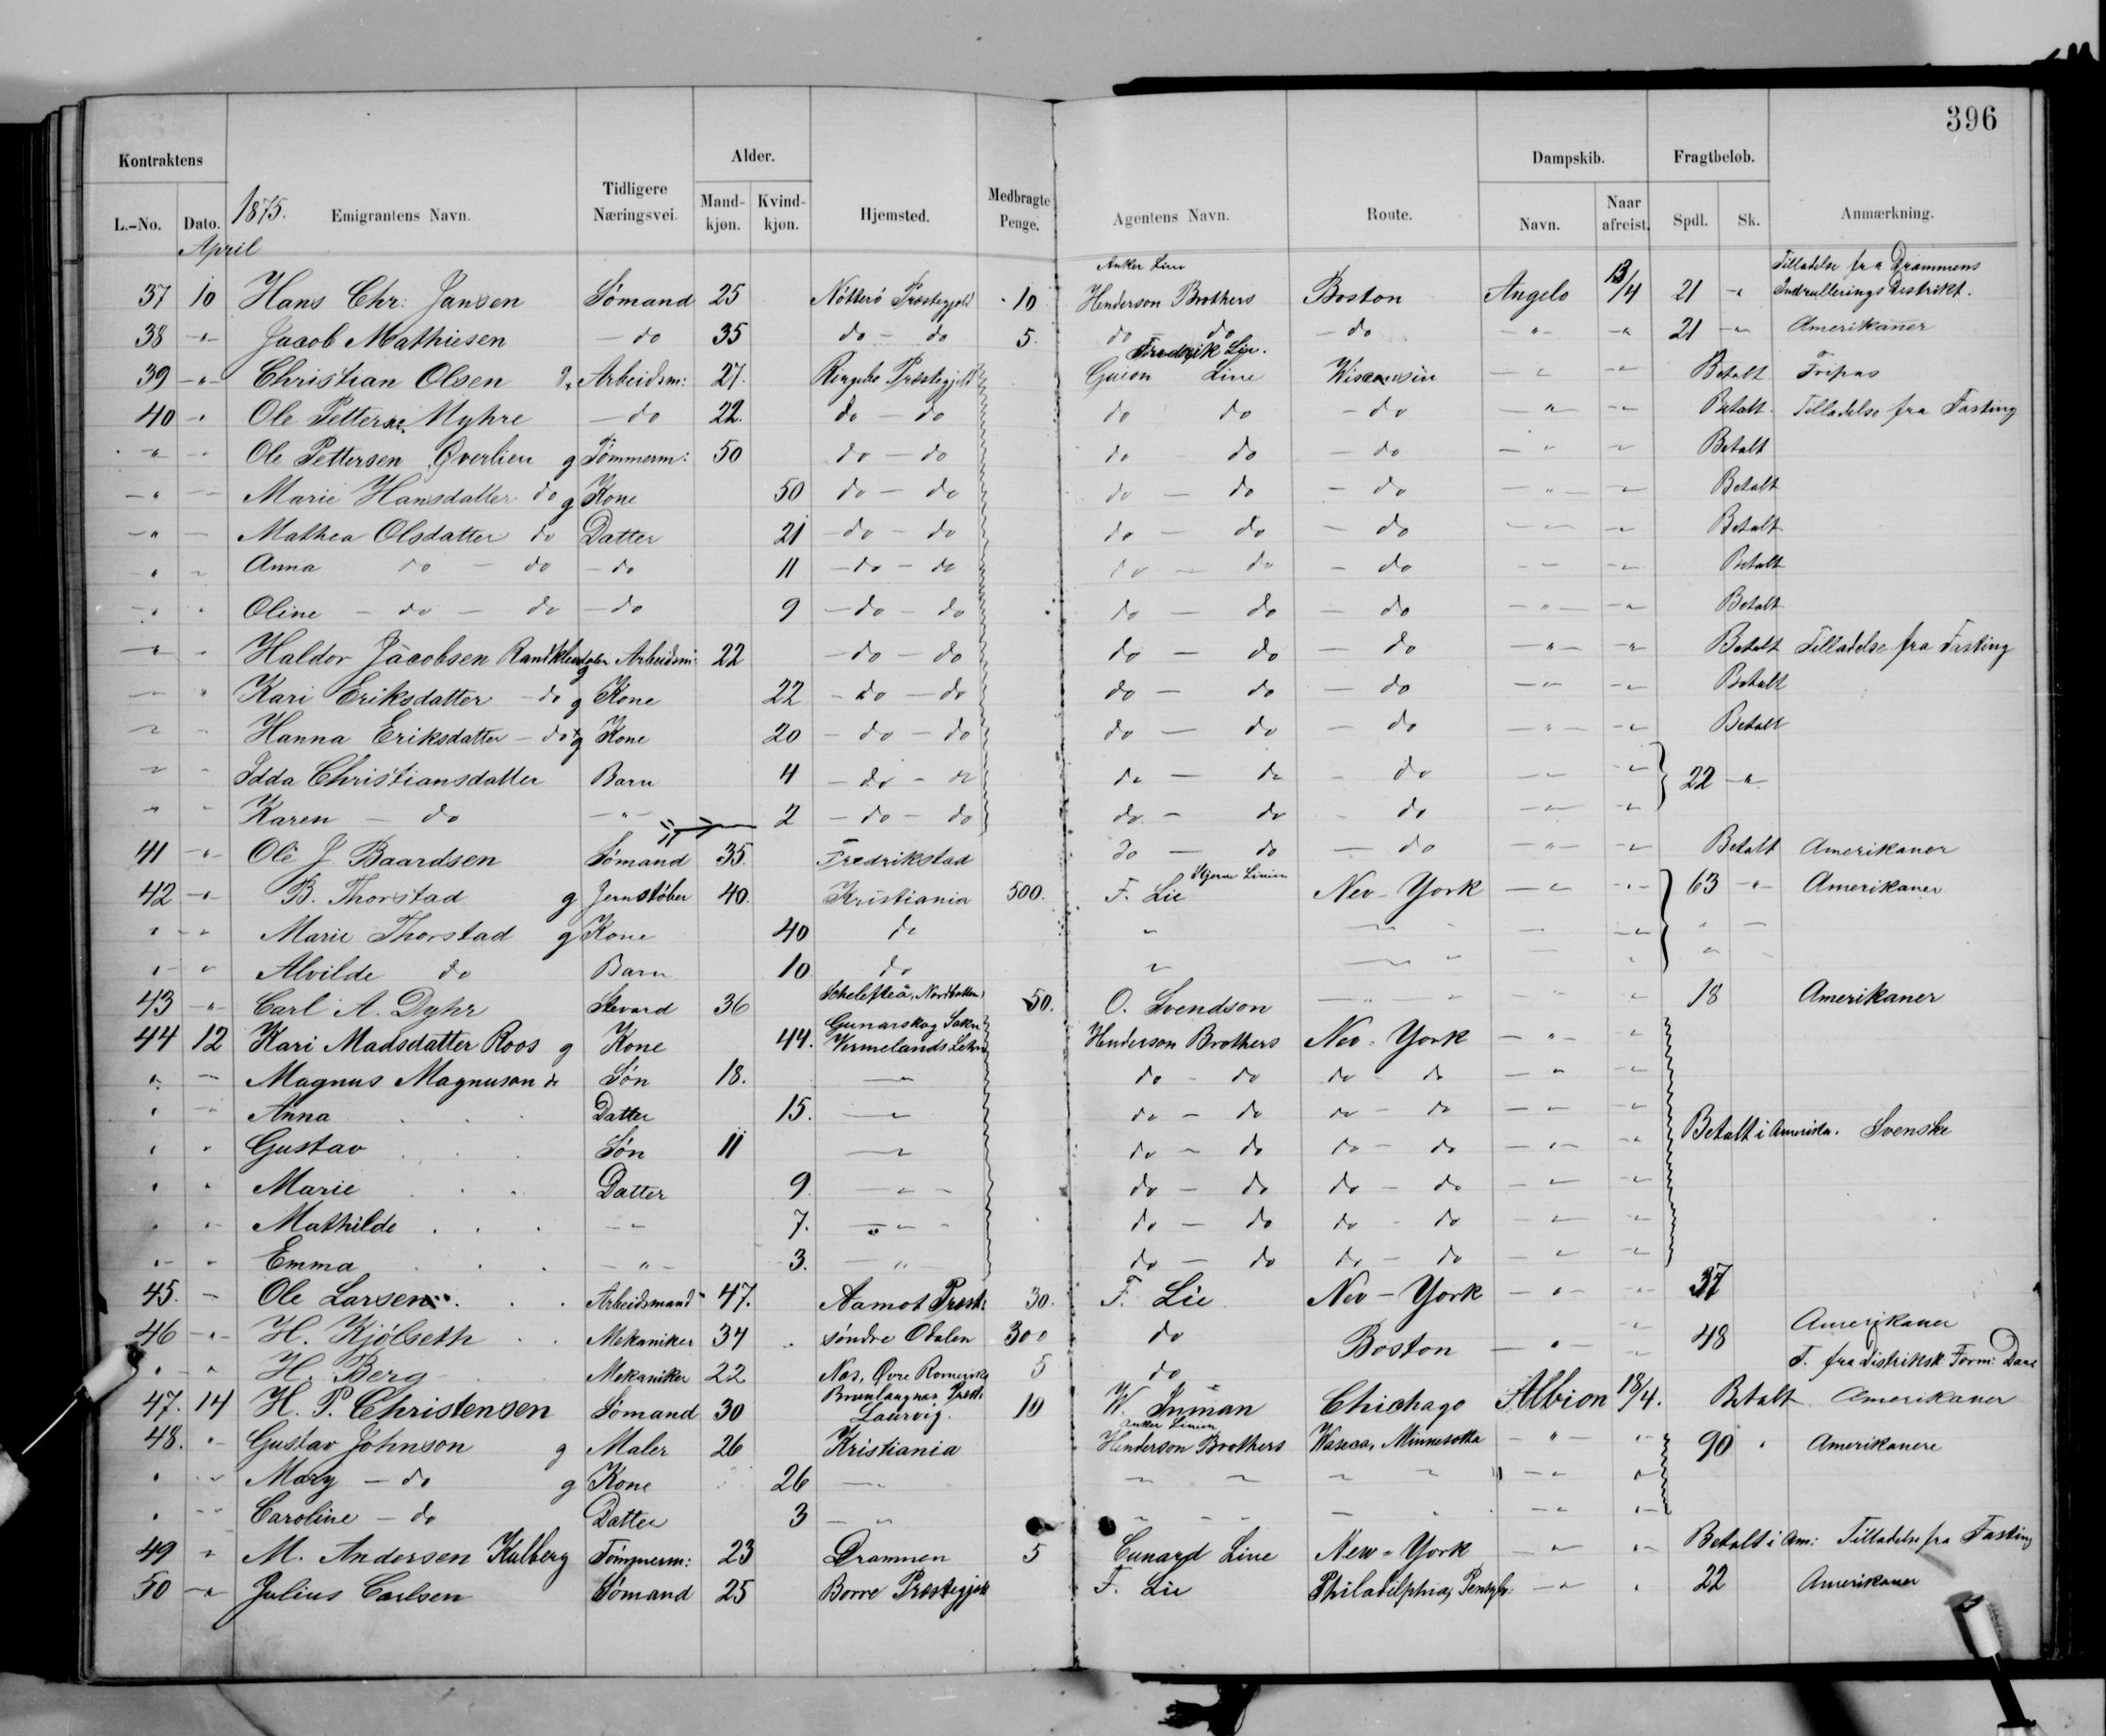 396
Kontraktens Alder. Dampskib. Fragtbeløb.
L.-No. Dato. 1875. Emigrantens Navn. Tidligere Næringsvei. Mand-kjøn. Kvind-kjøn. Hjemsted. Medbragte Penge. Agentens Navn. Route. Navn. Naar afreist. Spdl. Sk. Anmærkning.
April
Anker Line Tilladelse fra Drammens
37 10 Hans Chr: Jansen Sømand 25 Nötterö Præstegjeld 10 Henderson Brothers Boston Angelo 13/4 21 -"- Indrullerings Distrikt.
38 -"- Jacob Mathiesen - do 35 do - do 5. do do - do -"- -"- 21 -"- Amerikaner
Fredrik Lie.
39 -"- Christian Olsen g. Arbeidsm: 27. Ringebo Præstegjeld Guion Line Wisconsin -"- -"- Betalt Fripas
40 -"- Ole Petters. Myhre - do 22. do - do do do - do -"- -"- Betalt Tilladelse fra Fasting
-"- -"- Ole Pettersen Øverlien g Tømmerm: 50 do - do do do - do -"- -"- Betalt
-"- - Marie Hansdatter do g Kone 50 do - do do - do - do -"- -"- Betalt
-"- - Mathea Olsdatter do Datter 21 - do - do do - do - do -"- -"- Betalt
-"- -"- Anna do - do - do 11 - do - do do - do - do -"- -"- Betalt
-"- " Oline - do - do - do 9 - do - do do - do - do -"- -"- Betalt
-"- " Haldor Jacobsen Arbeidsm: 22 - do - do do - do - do -"- -"- Betalt Tilladelse fra Fasting
-"- " Kari Eriksdatter - do g Kone 22 - do - do do - do - do -"- -"- Betalt
-"- " Hanna Eriksdatter - do g Kone 20 - do - do do - do - do -"- -"- Betalt
-"- " Idda Christiansdatter Barn 4 - do - do do - do - do -"- -"- 22 -"-
-"- " Karen - do -"- 2 - do - do do - do - do -"- -"-
41 -"- Ole J Baardsen Sømand 35. Fredrikstad do - do - do -"- -"- Betalt Amerikaner
Stjerne Linien
42 -"- B. Thorstad g Jernstöber 40. Kristiania 500. F. Lie Nev-York -"- -"- 63 -"- Amerikaner
" -"- Marie Thorstad g Kone 40 do " -"- -"- -"- " -
"- " Alvilde do Barn 10 do " -"- " - " " -
43 -"- Carl A. Dyhr Stevard 36 Schelefteå, Nordbotten 50. O. Svendson -"- -"- " 18 Amerikaner
Gunarskog Sokn
44 12 Kari Madsdatter Roos g Kone 44. Vermelands Lehn Henderson Brothers Nev-York -"- -"-
" - Magnus Magnuson do Søn 18. -"- do - do do - do -"- -"-
" " Anna Datter 15. -"- do - do do - do -"- -"-
" " Gustav Søn 11 -"- do - do do - do -"- -"- Betalt i Amerika. Svenske
" " Marie Datter 9. -"- do - do do - do -"- -"-
" " Mathilde -"- 7. -"- do - do do - do -"- -"-
" " Emma -"- 3. -"- do - do do - do -"- -"-
45. - Ole Larsen Arbeidsmand 47. Aamot Præst: 30. F. Lie Nev-York -"- -"- 37
46 -"- H. Kjölseth Mekaniker 34 søndre Odalen 300 do Boston -"- -"- 48 Amerikaner
" " H. Berg Mekaniker 22 Nes, Øvre Romerike 5 do T. fra Distriksk. Form:
Brunlangnes Præst:
47. 14 H. P. Christensen Sømand 30 Laurvig. 10 W. Inman Chichago Albion 18/4. Betalt Amerikaner
Anker Linien
48. " Gustav Johnson g Maler 26 Kristiania Henderson Brothers Waseca, Minnesotta -"- "- 90 " Amerikanere
" " Mary - do g Kone 26 -"- " " " " -"- "-
" " Caroline - do Datter 3 -"- " - " - " -"- "-
49 " M. Andersen Kalberg Tømmerm: 23 Drammen 5 Cunard Line New-York -"- "- Betalt i Am: Tilladelse fra Fasting
50 -"- Julius Carlsen Sømand 25 Borre Præstegjeld F. Lie Philadelphia, Pensylv: -"- " 22 Amerikaner